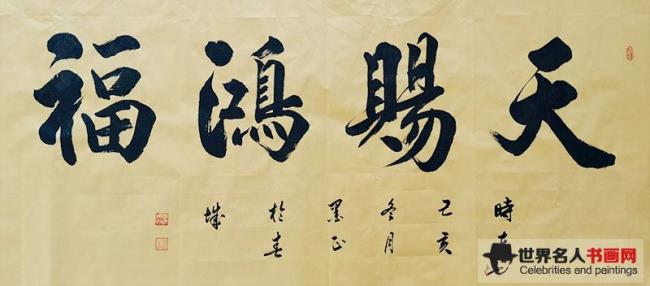 天賜鴻福
時在
己亥
冬月
墨正
於春
城
世界名人书画网
Celebrities and paintings